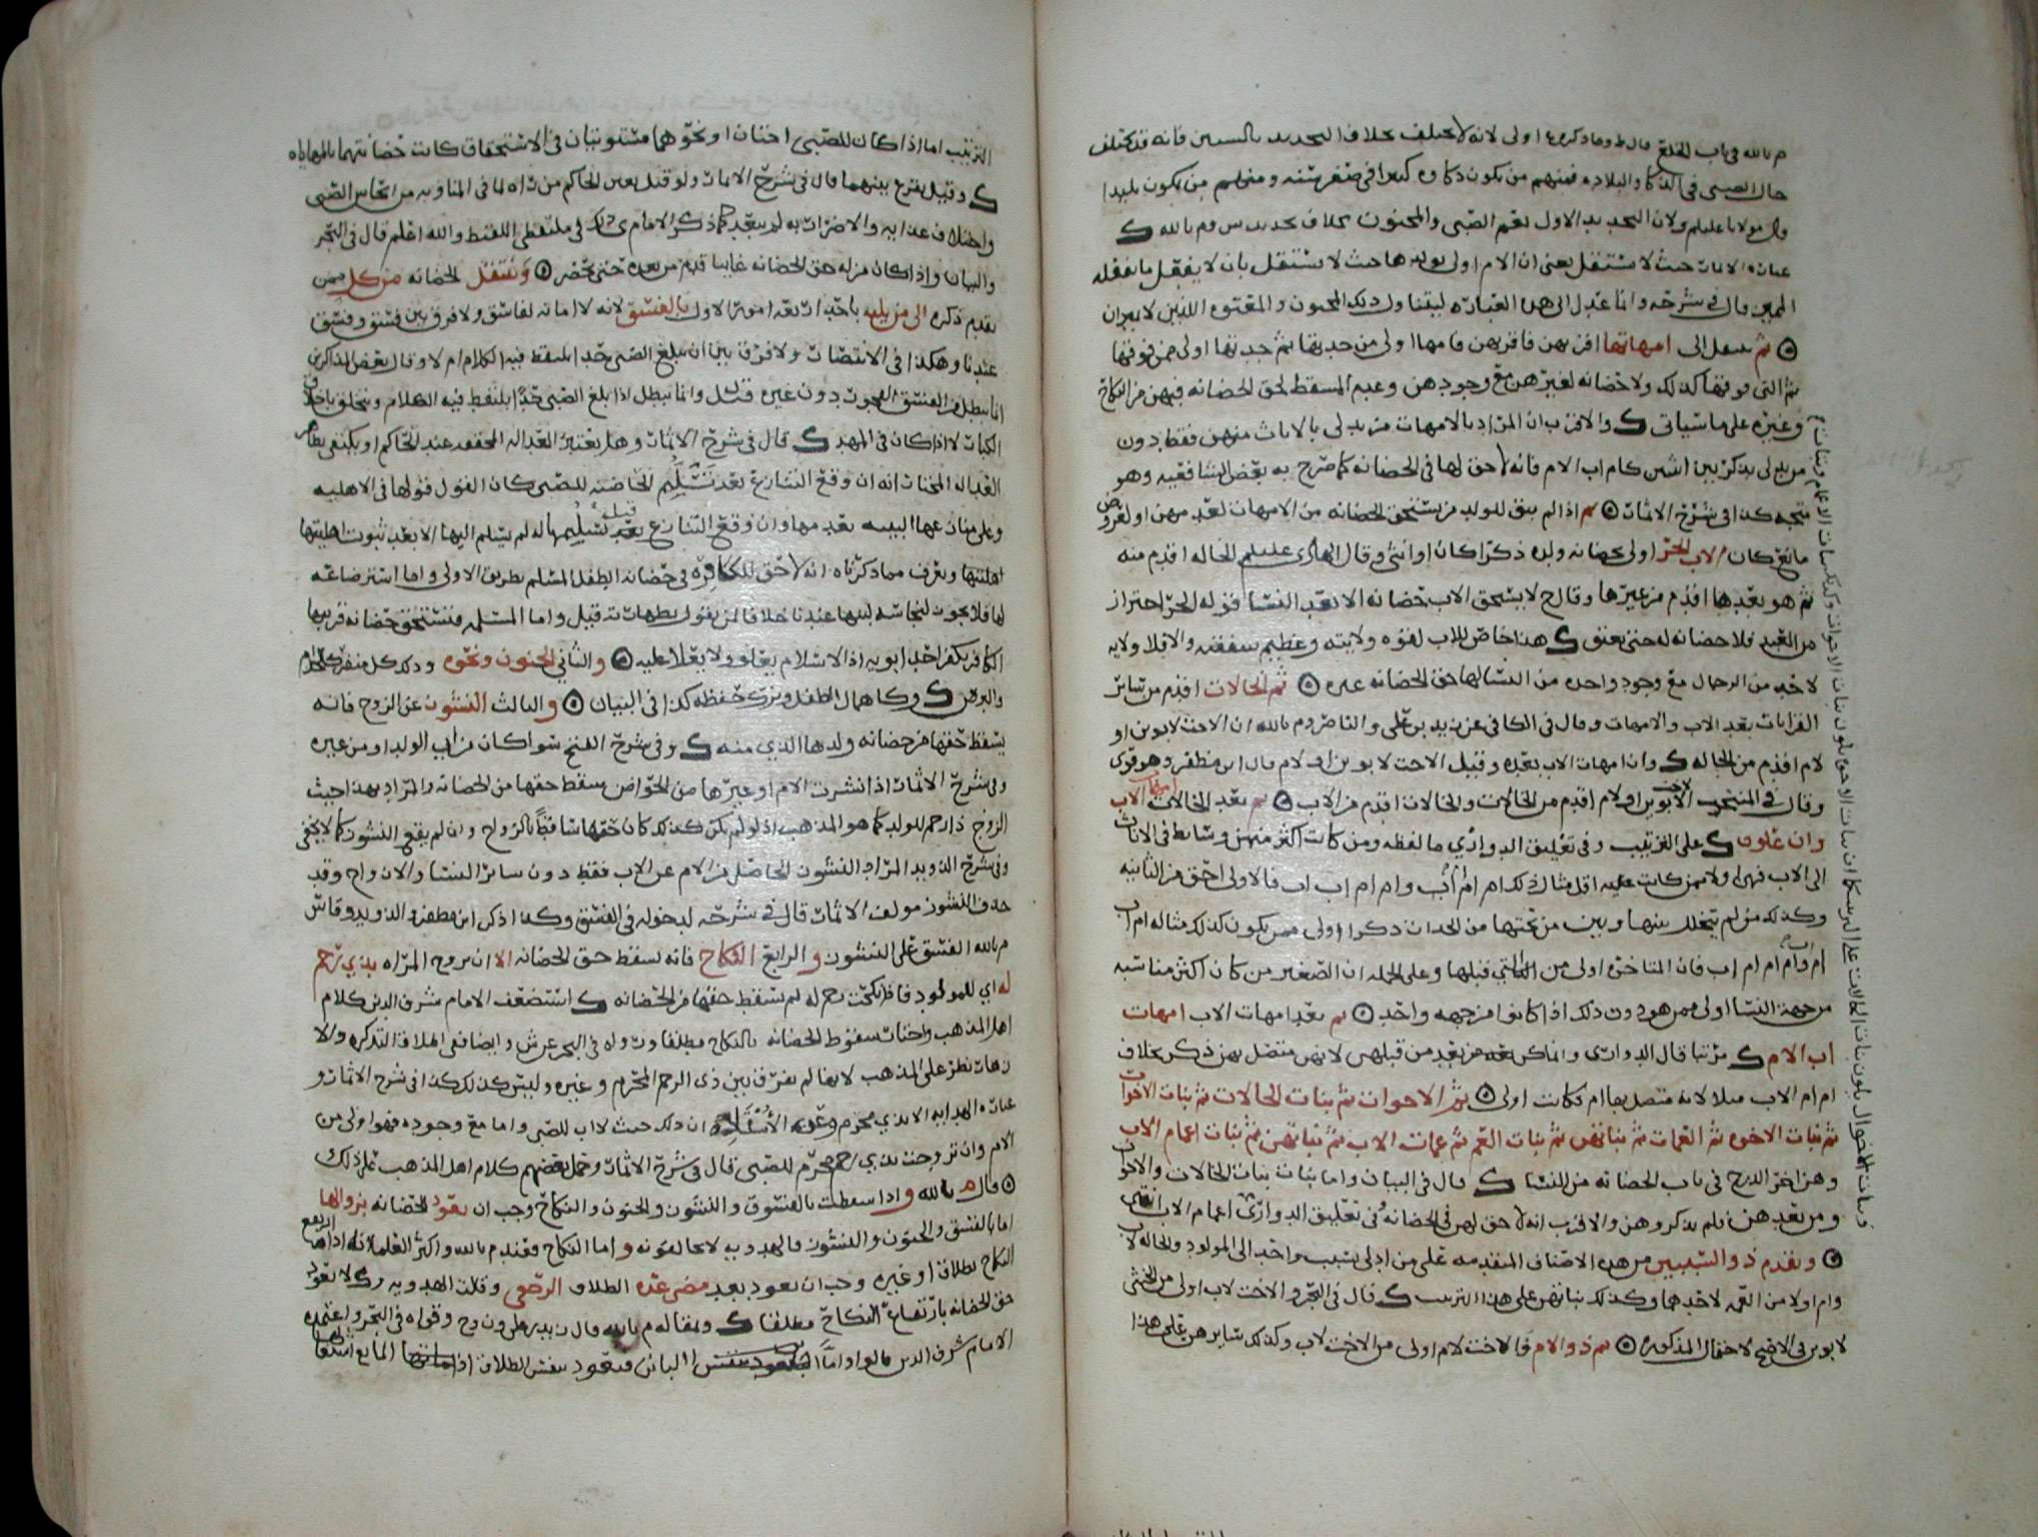 م بالله في باب الخلع قال ط وما ذكره اولى لانه لا يختلف بخلاف التحديد بالسنين فانه قد يختلف
حال الصبي في الذكا والبلاده فمنهم من يكون ذكاوه كبيرا في صغر سنه ومنهم من يكون بليدا
قال مولانا عليلم ولان التحديد الاول يعم الصبي والمجنون بخلاف تحديد س وم بالله ك
عباره الاثمار حيث لا يستقل يعني ان الام اولى بولدها حيث لا يستقل بان لا يفعل ما يفعله
المميز قال في شرحه وانما عدل الى هذه العباره ليتناول ذلك المجنون والمعتوه اللذين لا يميزان
ثم ينتقل الى امهاتها اقربهن فاقربهن فامها اولى من جدتها ثم جدتها اولى ممن فوقها
ثم التي فوقها كذلك ولا حضانه لغيرهن مع وجودهن وعدم المسقط لحق الحضانه فيهن من النكاح
وغيره على ما سياتي ك والاقرب ان المراد بالامهات من يدلي بالاناث منهن فقط دون
من يدلي بذكر بين انثيين كام اب الام فانه لا حق لها في الحضانه كما صرح به بعض الشافعيه وهو
متجه كذا في شرح الاثمار ثم اذا لم يبق للولد من يستحق الحضانه من الامهات لعدمهن او لعروض
مانع كان الاب الحر اولى بحضانه ولده ذكرا كان او انثى وقال الهادي عليلم الخاله اقدم منه
ثم هو بعدها اقدم من غيرها وقال ح لا يستحق الاب حضانه الا بعد النسا قوله الحر احتراز
من العبد فلا حضانه له حتى يعتق ك هذا خاص للاب لقوه ولايته وعظيم شفقته والا فلا ولايه
لاحد من الرجال مع وجود واحده من النسا لها حق الحضانه غيره ثم الخالات اقدم من سائر
القرابات بعد الاب والامهات وقال في الكافي عن زيد بن علي والناصر وم بالله ان الاخت لابوين او
لام اقدم من الخاله ك وان امهات الاب بعده وقيل الاخت لابوين او لام قال ابن مظفر وهو قوي
وقال في المنتخب الاخت لابوين او لام اقدم من الخالات والخالات اقدم من الاب ثم بعد الخالات امهات الاب
وان علون ك على الترتيب وفي تعليق الدواري ما لفظه ومن كانت اكثر منهن وسائط في الاناث
الى الاب فهي اولى ممن كانت عليه اقل مثال ذلك ام ام اب وام ام اب اب فالاولى احق من الثانيه
وكذلك من لم يتخلل بينها وبين من تحتها من الجدات ذكرا اولى ممن يكون كذلك مثاله ام اب
ام وام ام ام اب فان المتاخره اولى من التي قبلها وعلى الجمله ان الصغير من كان اكثر مناسبه
من جهة النسا اولى ممن هو دون ذلك اذا كانوا من جهه واحد ثم بعد امهات الاب امهات
اب الام ك مرتبا قال الدواري وانما كن بعد من قبلهن لانهن متصل بهن ذكر بخلاف
ام ام الاب مثلا لانه متصل بها ام فكانت اولى ثم الاخوات ثم بنات الخالات ثم بنات الاخوات
ثم بنات الاخوه ثم العمات ثم بناتهن ثم بنات العم ثم عمات الاب ثم بناتهن ثم بنات اعمام الاب
وهن اخر الدرج في باب الحضانه من النسا ك قال في البيان واما بنات بنات الخالات والاخوات
ومن بعدهن فلم يذكروهن والاقرب انه لا حق لهن في الحضانه وفي تعليق الدواري اعمام الاب انتهى
ويقدم ذو السببين من هذه الاصناف المتقدمه على من ادلى بسبب واحد الى المولود والخاله لاب
وام اولا من العمه لاحدهما وكذلك بناتهن على هذا الترتيب ك قال في البحر والاخت لاب اولى من الخنثى
لابوين في الاصح لاحتمال الذكوره ثم ذو الام فالاخت لام اولى من الاخت لاب وكذلك سايرهن على هذا
الترتيب اما اذا كان للصبي اختان او نحوهما مستويتان في الاستحقاق كانت حضانتهما بالمهاياه
ك وقيل يقرع بينهما قال في شرح الاثمار ولو قيل يعين الحاكم من راه لما في المناوبه من ايحاش الصبي
واختلاف غذائه والاضرار به لم يبعد كما ذكر الامام ي ذلك في ملتقطي اللقيط والله اعلم قال في البحر
والبيان واذا كان من له حق الحضانه غايبا قدم من بعده حتى يحضر وتنتقل الحضانه من كل ممن
تقدم ذكره الى من يليه باحد اربعه امور الاول بالفسق لانه لا امانه لفاسق ولا فرق بين فسق وفسق
عندنا وهكذا في الانتصار ولا فرق بين ان يبلغ الصبي حدا يلتقط فيه الكلام ام لا وقال بعض المذاكرين
انما يبطل من الفسق الفجور دون غيره قيل وانما يبطل اذا بلغ الصبي حدا يلتقط فيه الكلام ويتخلق باخلاق
الكبار لا اذا كان في المهد ك قال في شرح الاثمار وهل يعتبر العداله المحققه عند الحاكم او يكتفى بظاهر
العداله المختار انه ان وقع التنازع بعد تسليم الحاضنه للصبي كان القول قولها في الاهليه
وعلى منازعها البينه بعدمها وان وقع التنازع قبل تسليمها له لم يسلم اليها الا بعد ثبوت اهليتها
اهليتها ويعرف مما ذكرناه انه لا حق للكافره في حضانه الطفل المسلم بطريق الاولى واما استرضاعه
لها فلا يجوز لنجاسه لبنها عندنا خلافا لمن يقول بطهارته قيل واما المسلمه فتستحق حضانه قريبها
الكافر بكفر احد ابويه اذ الاسلام يعلو ولا يعلا عليه والثاني الجنون ونحوه وذلك كل منفر كالجذام
والبرص ك وكاهمال الطفل وترك حفظه كذا في البيان والثالث النشوز عن الزوج فانه
يسقط حقها من حضانه ولدها الذي منه ك وفي شرح الفتح سوا كان من ابي الولد او من غيره
وفي شرح الاثمار اذا نشزت الام او غيرها من الحواضن سقط حقها من الحضانه والمراد بهذا حيث
الزوج ذا رحم للولد كما هو المذهب اذ لو لم يكن كذلك كان حقها ساقطا بالزواج وان لم يقع النشوز كما لا يخفى
وفي شرح الذويد المراد النشوز الحاصل من الام عن الاب فقط دون سائر النسا والازواج وقد
حذف النشوز مولف الاثمار قال في شرحه لدخوله في الفسق وكذا ذكر ابن مظفر والذويد وقاس
م بالله الفسق على النشوز والرابع النكاح فانه يسقط حق الحضانه الا ان تزوج المراه بذي رحم
له اي للمولود فاذا نكحت رحم له لم يسقط حقها من الحضانه ك استضعف الامام شرف الدين كلام
اهل المذهب واختار سقوط الحضانه بالنكاح مطلقا ورواه في البحر عن ش وايضا ففي اطلاق التذكره والا
زهار نظر على المذهب لانهما لم يفرقا بين ذي الرحم المحرم وغيره وليس كذلك كذا في شرح الاثمار و
عباره الهدايه الا بذي محرم وعن الاستاذ ان ذلك حيث لا اب للصبي واما مع وجوده فهو اولى من
الام وان تزوجت بذي رحم محرم للصبي قال في شرح الاثمار وحمل بعضهم كلام اهل المذهب على ذلك
قال م بالله واذا سقطت بالفسوق والنشوز والجنون والنكاح وجب ان تعود الحضانه بزوالها
اما بالفسق والجنون والنشوز فالهدويه لا يخالفونه واما النكاح فعند م بالله واكثر العلما انه اذا ارتفع
النكاح بطلاق او غيره وجب ان تعود بعد مضي عده الطلاق الرجعي وقلت الهدويه وك لا تعود
حق الحضانه بارتفاع النكاح مطلقا ك وبمقاله م بالله قال زيد بن علي ون وح وقواه في البحر واعتمده
الامام شرف الدين قالوا واما البائن فتعود بنفس الطلاق اذ المانع استمتاعها